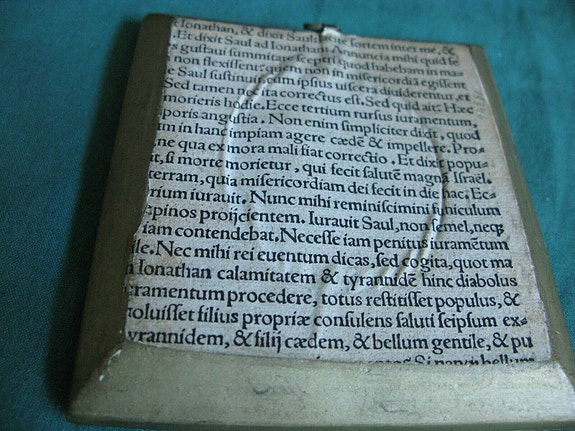 Ionathan, & dixit Saul: ſortem inter me, &
Et dixit Saul ad Ionatham Annuncia mihi quid fe
s guſtaui ſummitate ſceptri quod habebam in ma-
non flexiſſent: quem non in miſericordiā egiſſent
e Saul ſuſtinuit cum ipſius uiſcera diuiderentur, et
Sed tamen nec ita correctus eſt. Sed quid ait? Hæc
morieris hodie. Ecce tertium rurſus iuramentum,
poris anguſtia. Non enim ſimpliciter dixit, quod
tm in hanc impiam agere cædē & impellere. Pro-
ne qua ex mora mali fiat correctio. Et dixit popu-
it, ſi morte morietur, qui fecit ſalutē magnā Iſraël.
terram, quia miſericordiam dei fecit in die hac. Ec-
rium iurauit. Nunc mihi reminiſcimini funiculum
pinos proijcientem. Iurauit Saul, non ſemel, neqꝫ
iam contendebat. Neceſſe iam penitus iuramētum
ile. Nec mihi rei euentum dicas, ſed cogita, quot ma
n Ionathan calamitatem & tyrannidē hinc diabolus
cramentum procedere, totus reſtitiſſet populus, &
noluiſſet filius propriæ conſulens ſaluti ſeipſum ex-
tyrannidem, & filij cædem, & bellum gentile, & pu
bellum